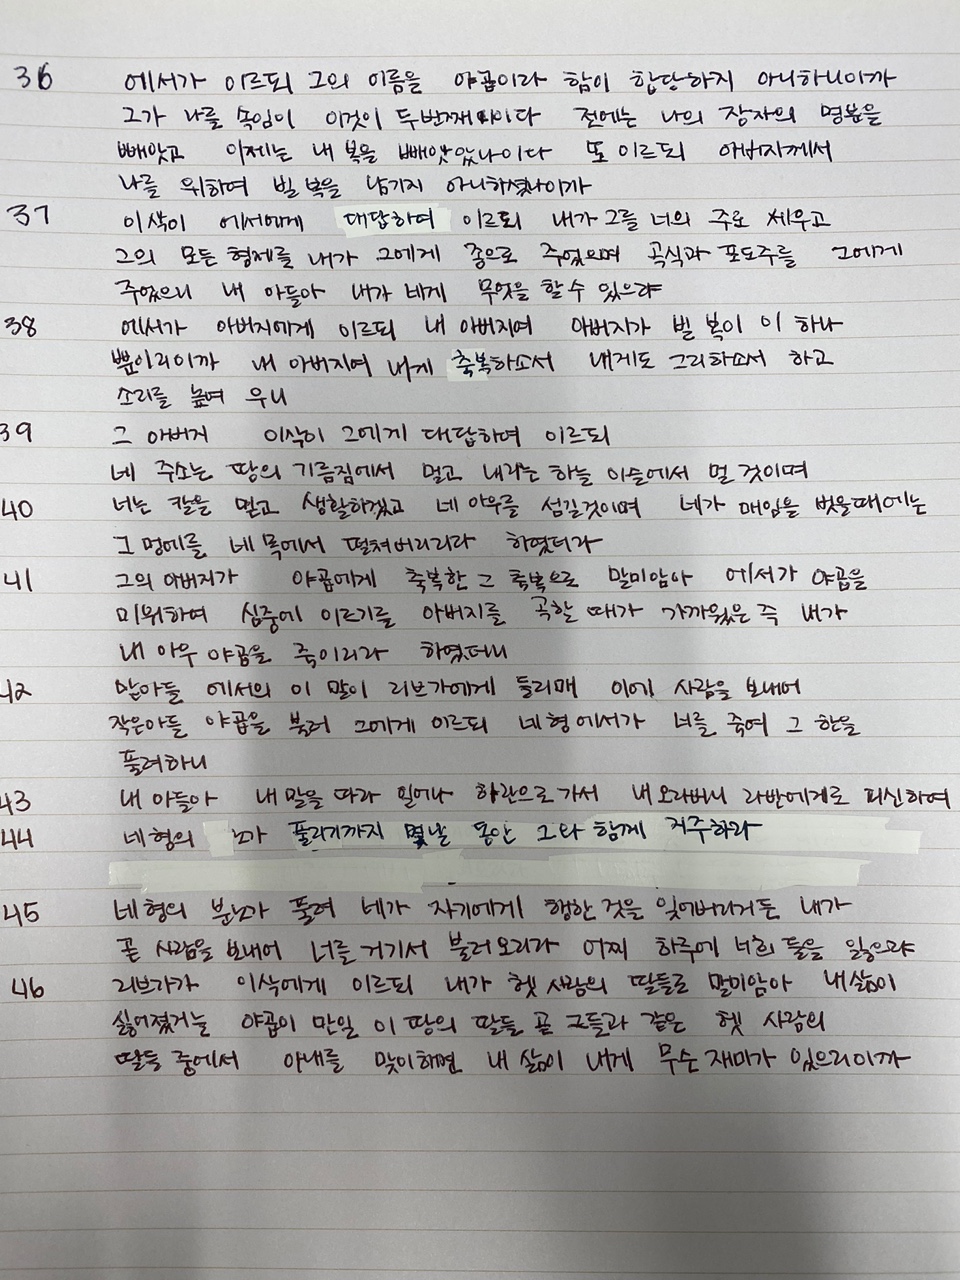 36 에서가 이르되 그의 이름을 야곱이라 함이 합당하지 아니하니이까
그가 나를 속임이 이것이 두번째니이다 전에는 나의 장자의 명분을
빼앗고 이제는 내 복을 빼앗았나이다 또 이르되 아버지께서
나를 위하여 빌 복을 남기지 아니하셨나이까
37 이삭이 에서에게 대답하여 이르되 내가 그를 너의 주로 세우고
그의 모든 형제를 내가 그에게 종으로 주었으며 곡식과 포도주를 그에게
주었으니 내 아들아 내가 네게 무엇을 할 수 있으랴
38 에서가 아버지에게 이르되 내 아버지여 아버지가 빌 복이 이 하나
뿐이리이까 내 아버지여 내게 축복하소서 내게도 그리하소서 하고
소리를 높여 우니
39 그 아버지 이삭이 그에게 대답하여 이르되
네 주소는 땅의 기름짐에서 멀고 내리는 하늘 이슬에서 멀 것이며
40 너는 칼을 믿고 생활하겠고 네 아우를 섬길것이며 네가 매임을 벗을때에는
그 멍에를 네 목에서 떨쳐버리리라 하였더라
41 그의 아버지가 야곱에게 축복한 그 축복으로 말미암아 에서가 야곱을
미워하여 심중에 이르기를 아버지를 곡할 때가 가까웠은 즉 내가
내 아우 야곱을 죽이리라 하였더니
42 맏아들 에서의 이 말이 리브가에게 들리매 이에 사람을 보내어
작은아들 야곱을 불러 그에게 이르되 네 형 에서가 너를 죽여 그 한을
풀려하니
43 내 아들아 내 말을 따라 일어나 하란으로 가서 내 오라버니 라반에게로 피신하여
44 네 형의 노가 풀리기까지 몇날 동안 그와 함께 거주하라
45 네 형의 분노가 풀려 네가 자기에게 행한 것을 잊어버리거든 내가
곧 사람을 보내어 너를 거기서 불러오리라 어찌 하루에 너희 둘을 잃으랴
46 리브가가 이삭에게 이르되 내가 헷 사람의 딸들로 말미암아 내 삶이
싫어졌거늘 야곱이 만일 이 땅의 딸들 곧 그들과 같은 헷 사람의
딸들 중에서 아내를 맞이하면 내 삶이 내게 무슨 재미가 있으리이까